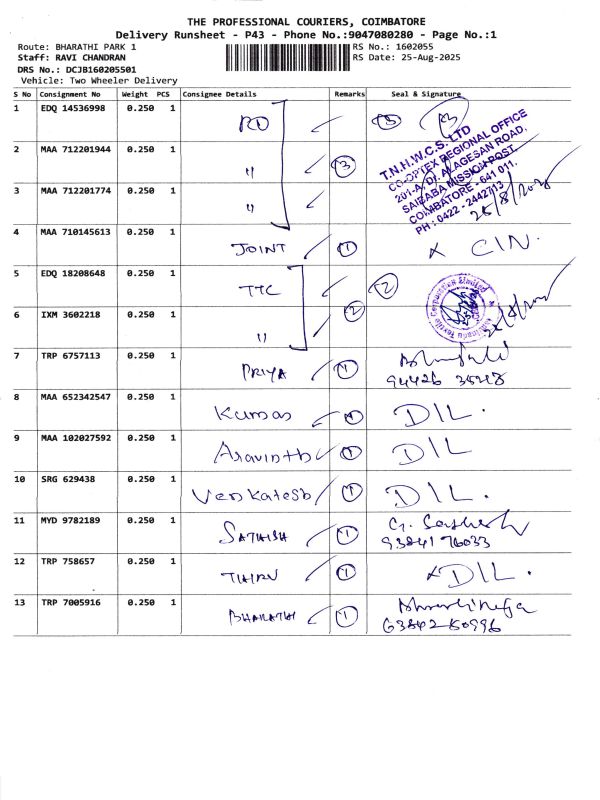 THE PROFESSIONAL COURIERS, COIMBATORE
Delivery Runsheet - P43 - Phone No.:9047080280 - Page No.:1
Route: BHARATHI PARK 1 RS No.: 1602055
Staff: RAVI CHANDRAN RS Date: 25-Aug-2025
DRS No.: DCJB160205501
Vehicle: Two Wheeler Delivery
S No Consignment No Weight PCS Consignee Details Remarks Seal & Signature
1 EDQ 14536998 0.250 1 RO 3 3
2 MAA 712201944 0.250 1 " 3
3 MAA 712201774 0.250 1 "
T.N.H.W.C.S. LTD
CO-OPTEX REGIONAL OFFICE
201-A, D/. ALAGESAN ROAD,
SAIBABA MISSION POST
COIMBATORE - 641 011.
PH : 0422 - 2442713
25/8/2025
4 MAA 710145613 0.250 1 JOINT 1 x CIN.
5 EDQ 18208648 0.250 1 TTC 2
6 IXM 3602218 0.250 1 " 2
7 TRP 6757113 0.250 1 PRIYA 1
94426 35248
8 MAA 652342547 0.250 1 Kumar 1 DIL.
9 MAA 102027592 0.250 1 Aravinth 1 DIL
10 SRG 629438 0.250 1 Venkatesh 1 DIL.
11 MYD 9782189 0.250 1 SATHISH 1 G. Sathesh
93841 76033
12 TRP 758657 0.250 1 THIRU 1 x DIL.
13 TRP 7005916 0.250 1 BHARATHI 1
63842-50996